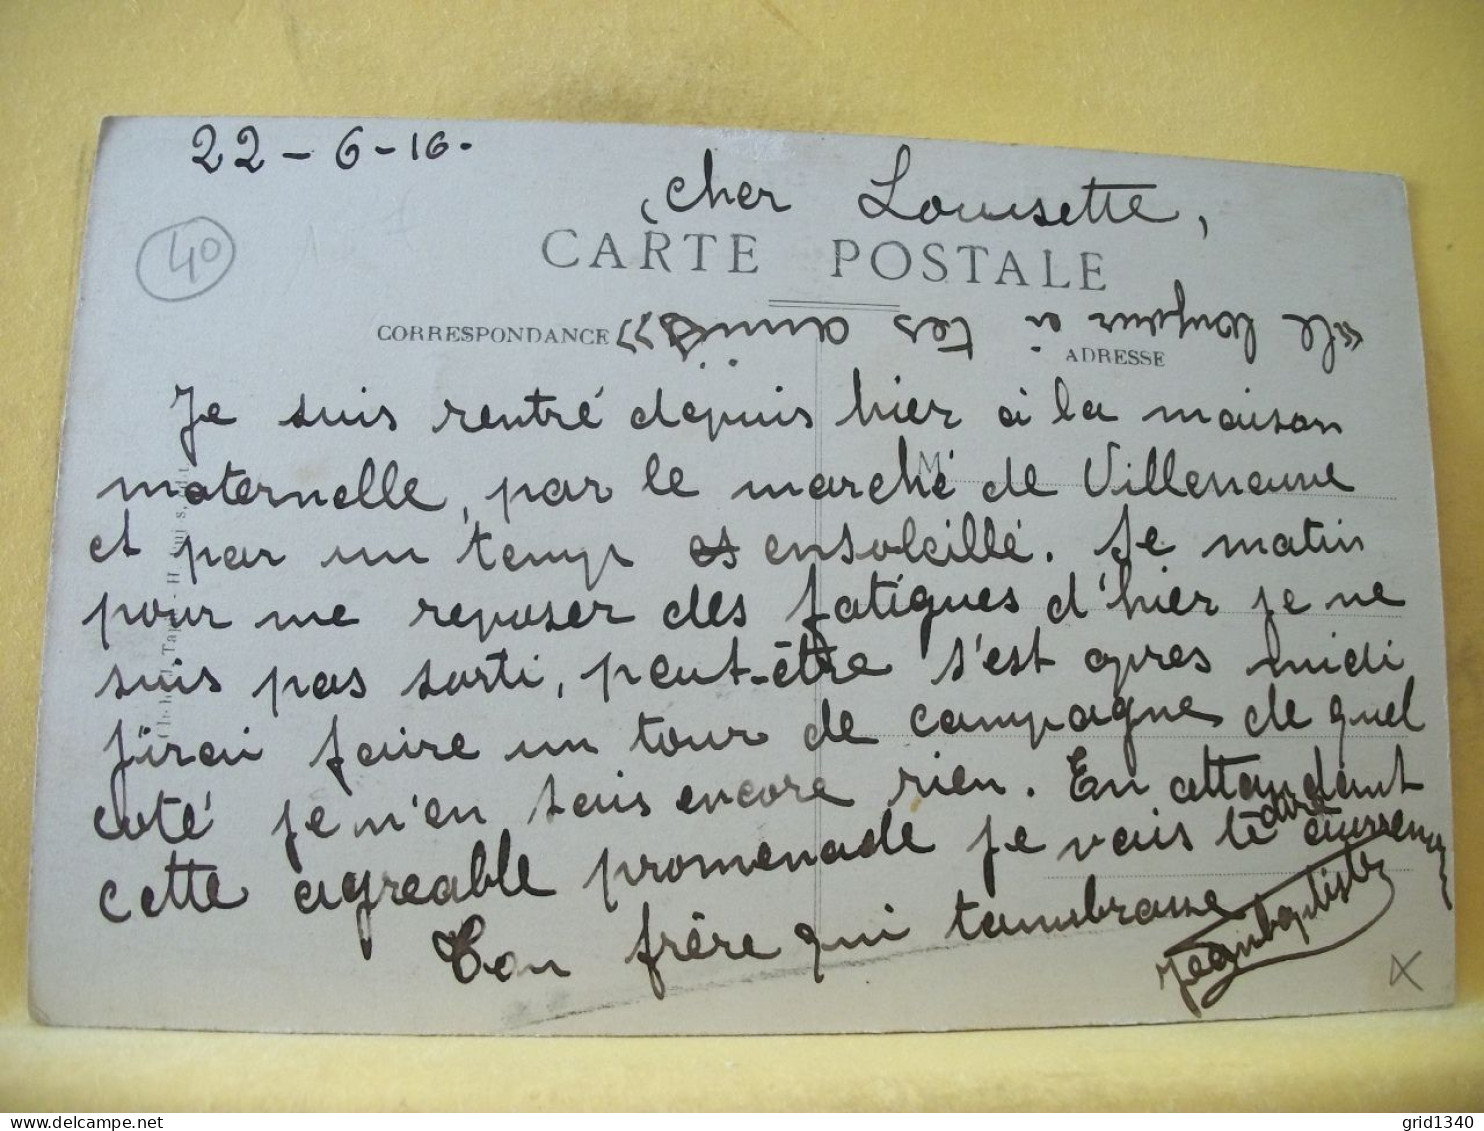 22 - 6 - 16.
40
cher Louisette,
CARTE POSTALE
CORRESPONDANCE
ADRESSE
« le bonjour a tes amies »
M
Je suis rentré depuis hier a la maison
maternelle, par le marché de Villeneuve
et par un temp ensoleillé. Je matin
pour me reposer des fatigues d'hier je ne
suis pas sorti, peut-être s'est apres midi
J'irai faire un tour de campagne de quel
coté je n'en sais encore rien. En attendant
cette agreable promenade je vais te dire
Ton frère qui tambrasse
Jeanbaptiste
grid1340